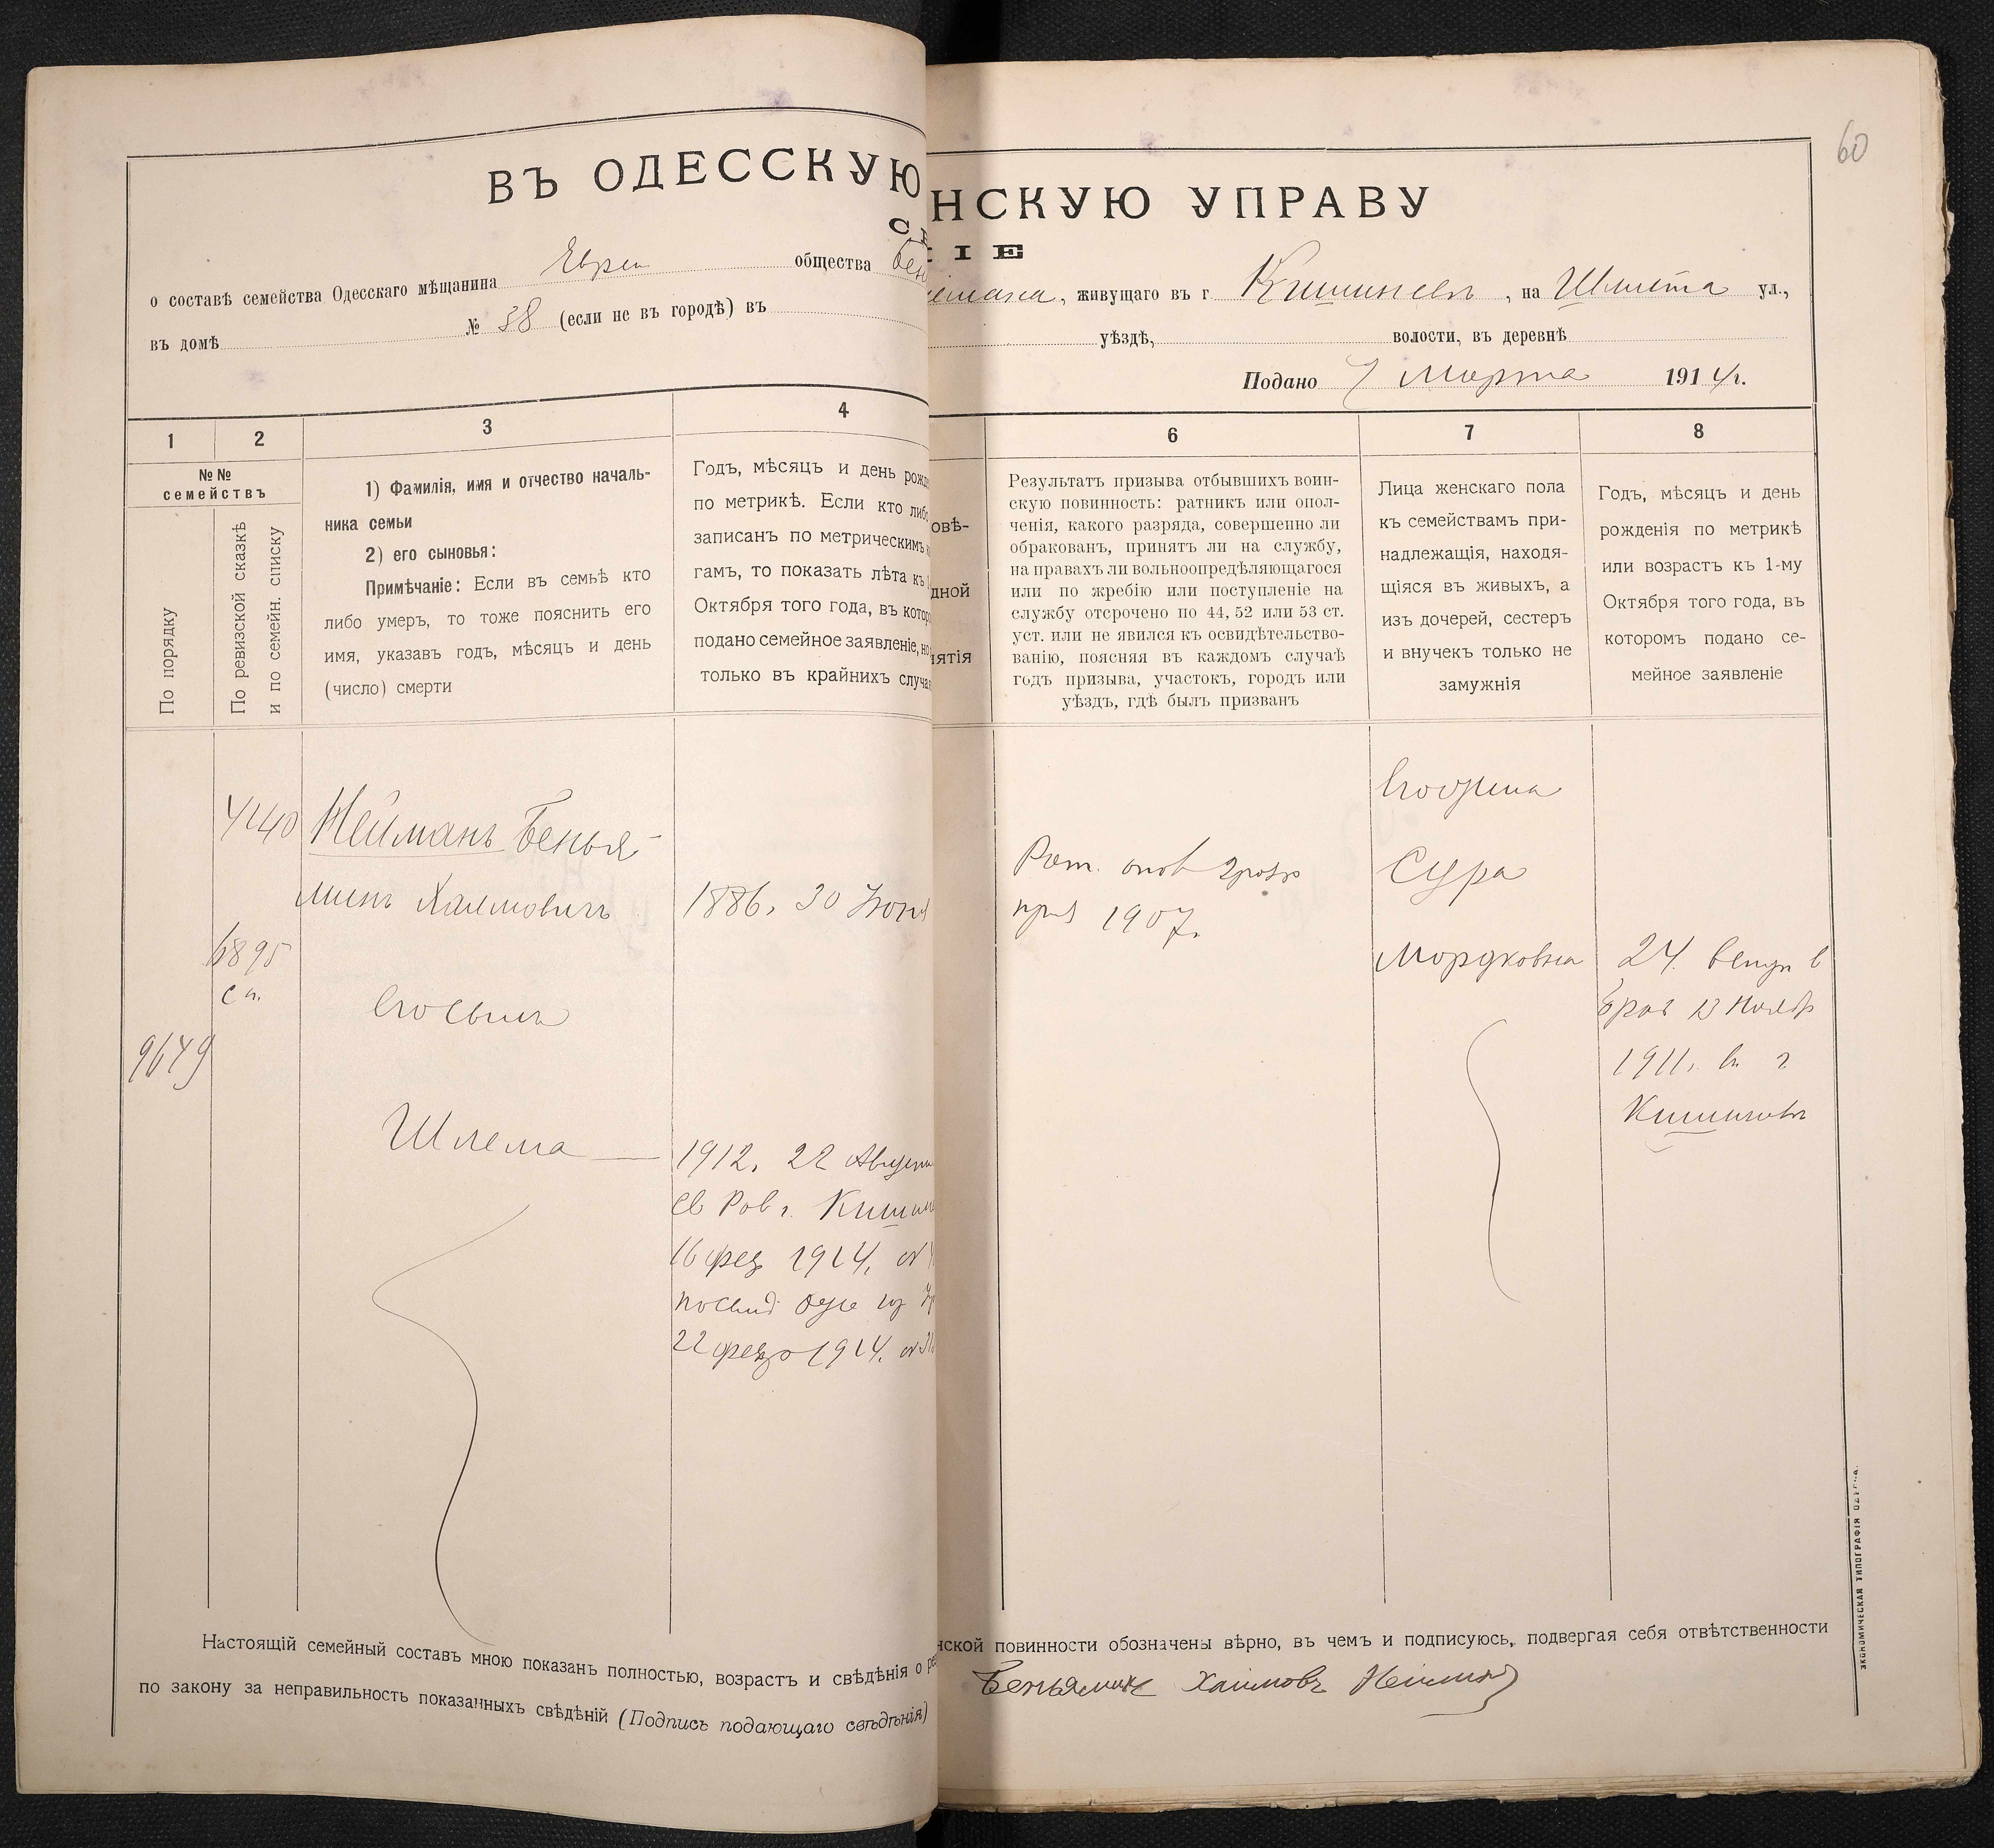 60
ВЪ ОДЕССКУЮ
НСКУЮ УПРАВУ
IE
о составѣ семейства Одесскаго мѣщанина Евреи общества Бен
, живущаго въ г. Кишиневъ, на ул.,
въ домѣ № 38 (если не въ городѣ) въ
уѣздѣ, волости, въ деревнѣ
Подано 7 Марта 1914 г.
1
2
3
4
6
7
8
№№
семействъ
По порядку
По ревизской сказкѣ
и по семейн. списку
1) Фамилія, имя и отчество началь-
ника семьи
2) его сыновья:
Примѣчаніе: Если въ семьѣ кто
либо умеръ, то тоже пояснить его
имя, указавъ годъ, мѣсяцъ и день
(число) смерти
Годъ, мѣсяцъ и день рожд
по метрикѣ. Если кто либо
записанъ по метрическимъ
гамъ, то показать лѣта къ
Октября того года, въ котор
подано семейное заявленіе, но
только въ крайнихъ случа
овѣ-
дной
нятія
Результатъ призыва отбывшихъ воин-
скую повинность: ратникъ или опол-
ченія, какого разряда, совершенно ли
обракованъ, принятъ ли на службу,
на правахъ ли вольноопредѣляющагося
или по жребію или поступленіе на
службу отсрочено по 44, 52 или 53 ст.
уст. или не явился къ освидѣтельство-
ванію, поясняя въ каждомъ случаѣ
годъ призыва, участокъ, городъ или
уѣздъ, гдѣ былъ призванъ
Лица женскаго пола
къ семействамъ при-
надлежащія, находя-
щіяся въ живыхъ, а
изъ дочерей, сестеръ
и внучекъ только не
замужнія
Годъ, мѣсяцъ и день
рожденія по метрикѣ
или возрастъ къ 1-му
Октября того года, въ
которомъ подано се-
мейное заявленіе
4140
Нейманъ Бенья-
минъ Хаимовичъ
1886. 30 Іюня
6895
сп.
Его сынъ
9649
Шлема
1912. 22 Август
св Рав г. Кишин
16 фев 1914.
22 февр 1914.
Рат. опол 2 разр
приз 1907.
Его жена
Сура
Мордковна
24. вступ в
брак 13 Нояб
1911. в г
Кишиневъ
Настоящій семейный составъ мною показанъ полностью, возрастъ и свѣдѣнія о
нской повинности обозначены вѣрно, въ чемъ и подписуюсь, подвергая себя отвѣтственности
по закону за неправильность показанныхъ свѣдѣній (Подпись подающаго свѣдѣнія)
Беньяминъ Хаимовъ Нейманъ
ЭКОНОМИЧЕСКАЯ ТИПОГРАФІЯ ОДЕССА.